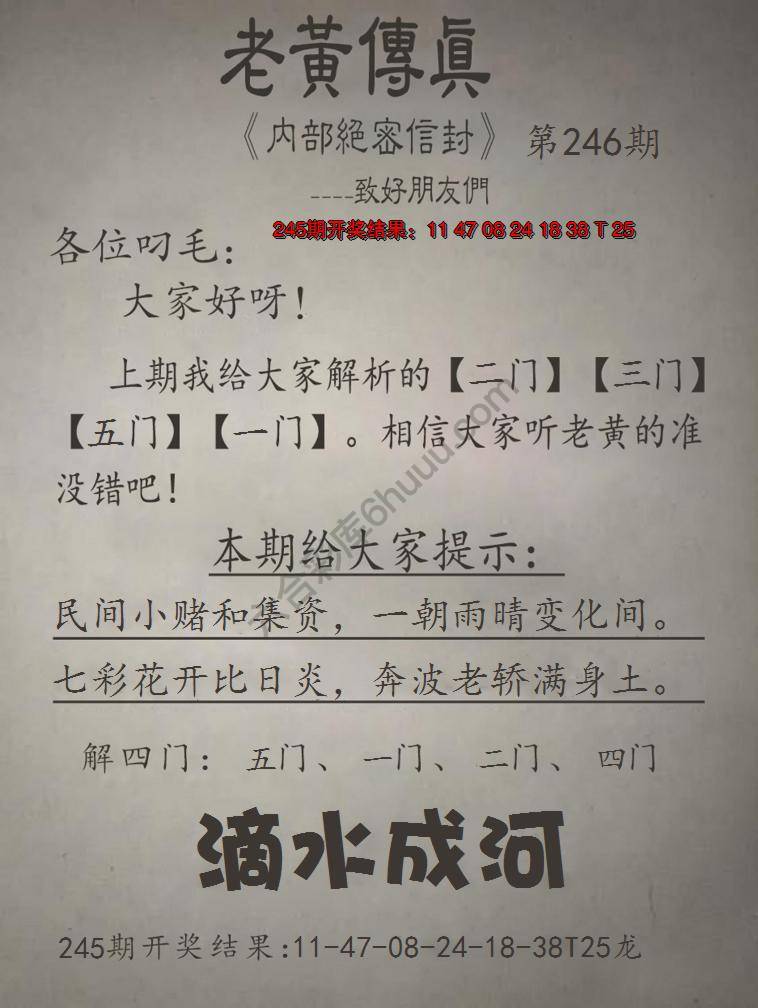 老黃傳眞
《内部絕密信封》 第246期
----致好朋友們
245期开奖结果：11 47 08 24 18 38 T 25
各位叼毛：
大家好呀！
上期我给大家解析的【二门】【三门】
【五门】【一门】。相信大家听老黄的准
没错吧！
本期给大家提示：
民间小赌和集资，一朝雨晴变化间。
七彩花开比日炎，奔波老轿满身土。
解四门： 五门、 一门、 二门、 四门
滴水成河
245期开奖结果:11-47-08-24-18-38T25龙
六合彩库6huuu.com